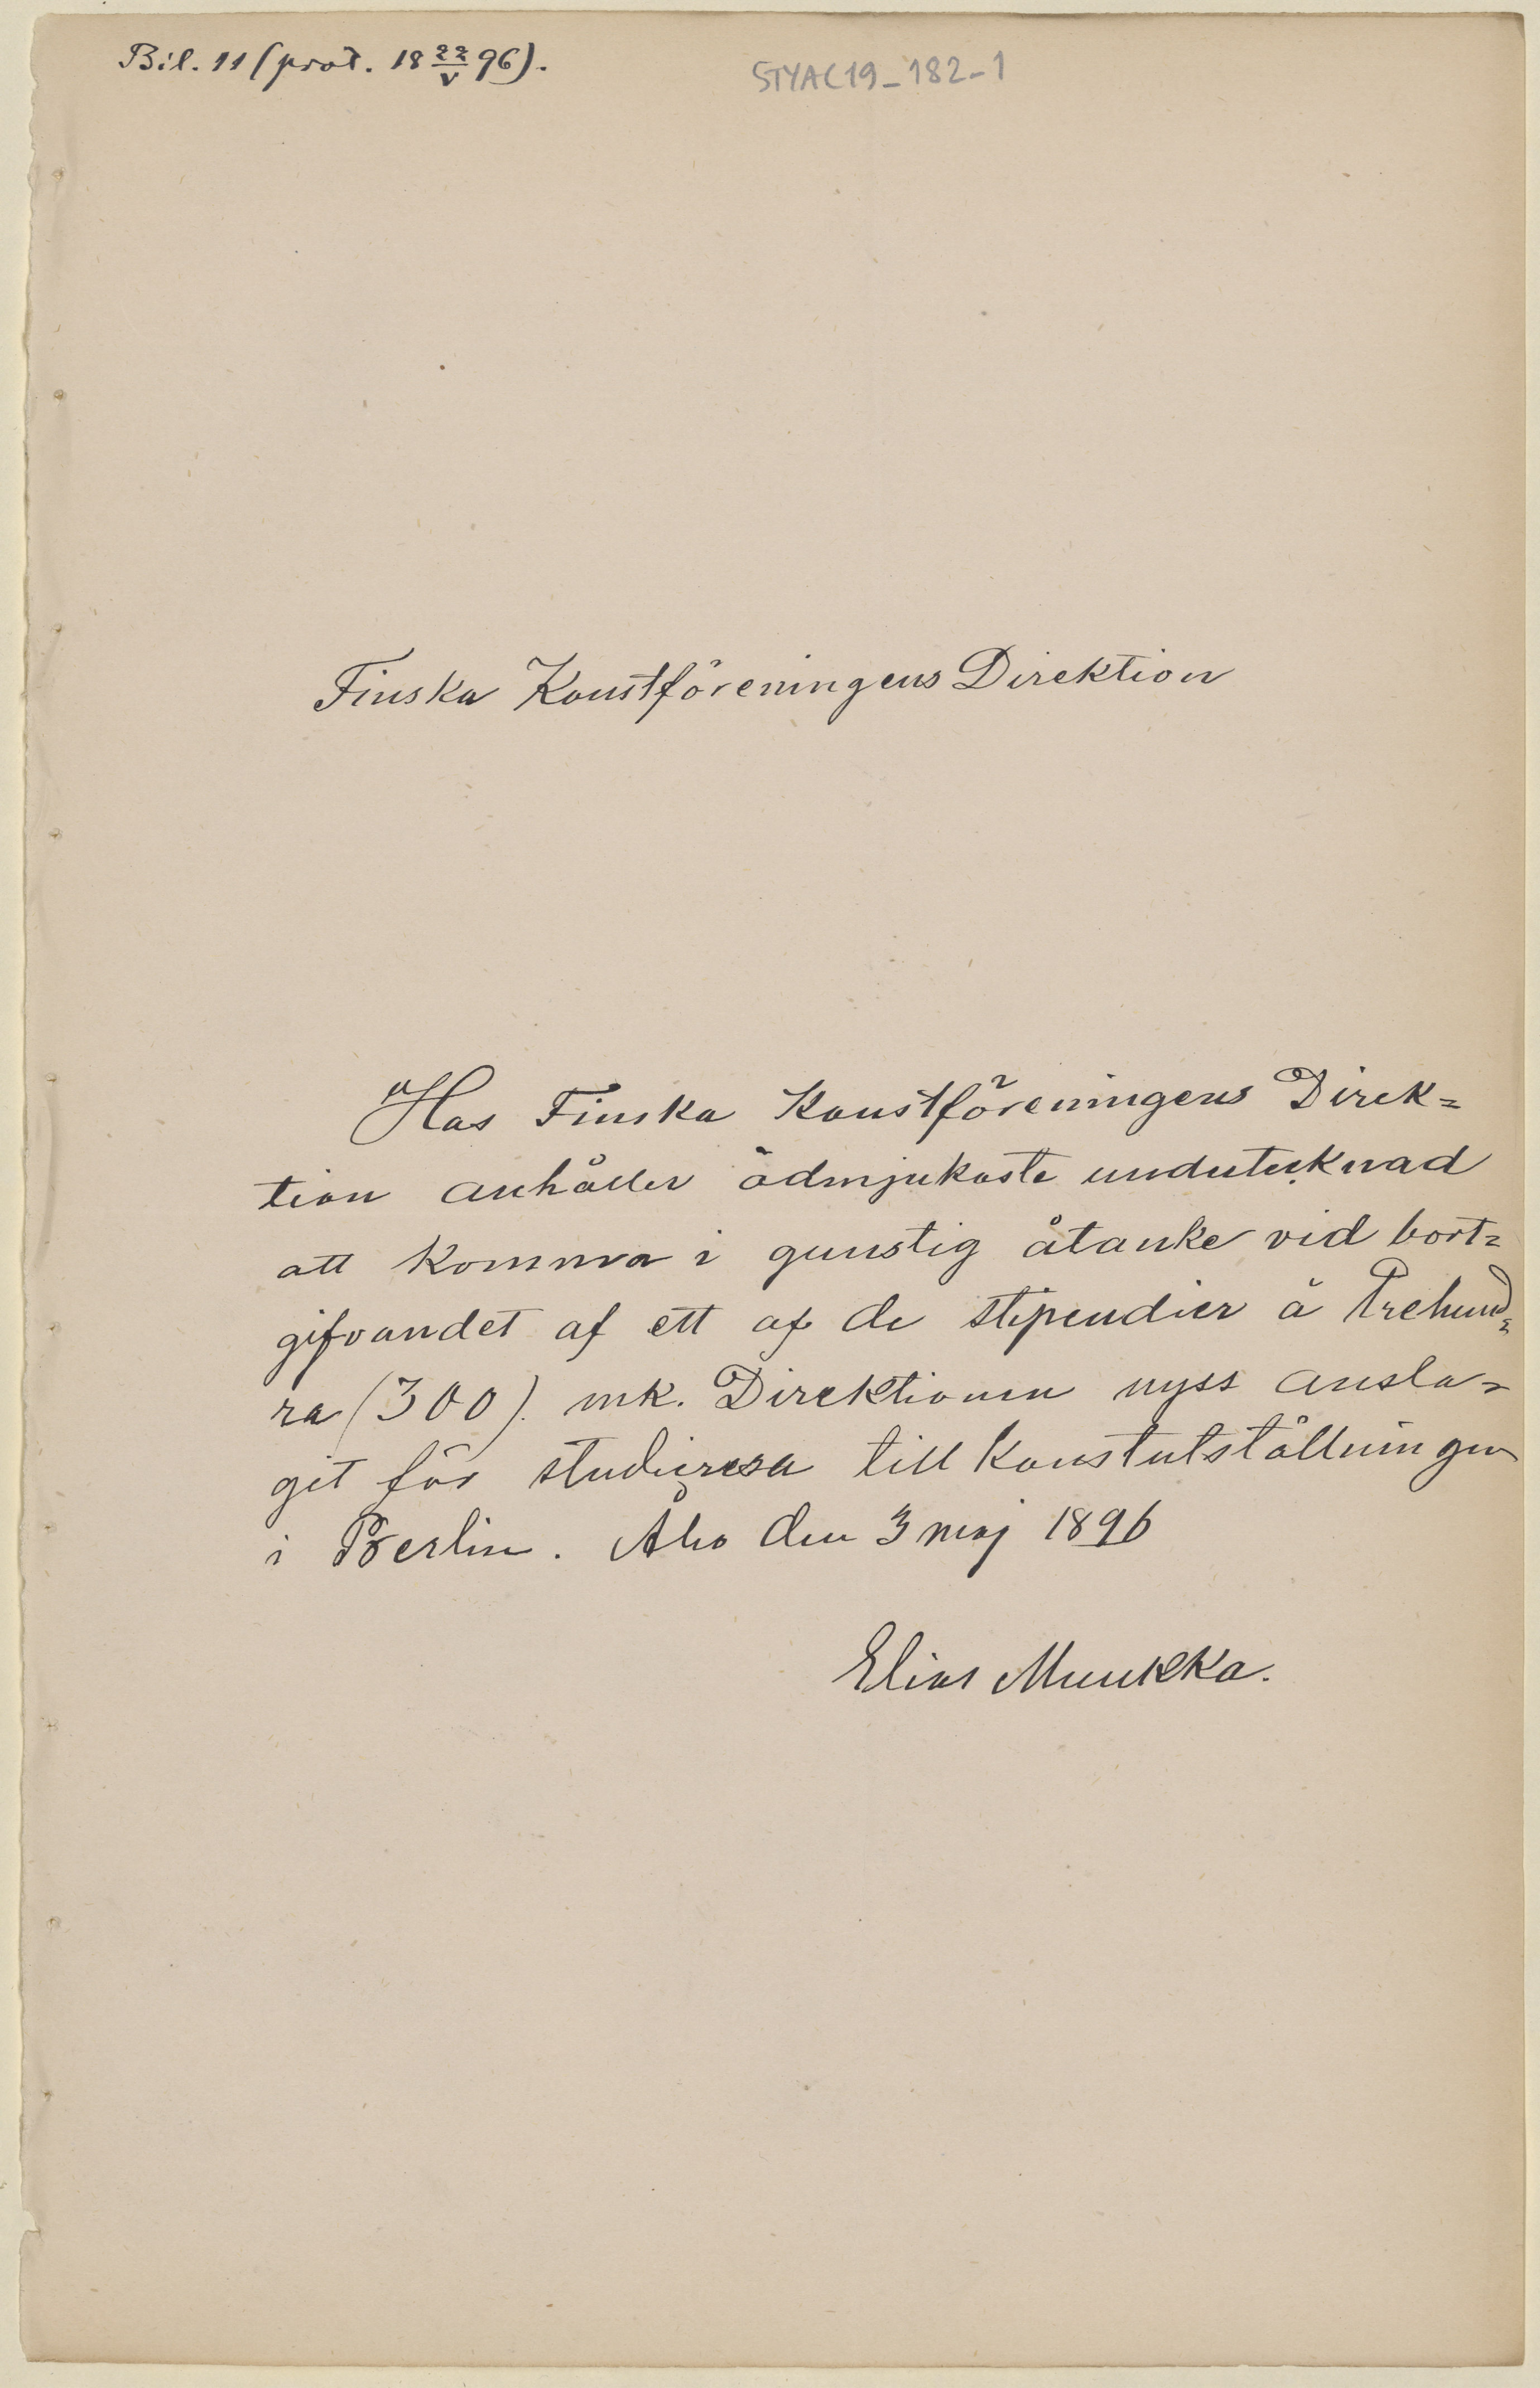 Bil. 11 (prot. 18 22/V 96).
STYAC19_182-1
Finska Konstföreningens Direktion
Hos Finska Konstföreningens Direk=
tion anhåller ödmjukaste undertecknad
att komma i gunstig åtanke vid bort=
gifvandet af ett af de stipendier à Trehund=
ra (300). mk. Direktionen nyss ansla=
git för studieresa till Konstutställningen
i Berlin. Åbo den 3 maj 1896
Elias Muukka.